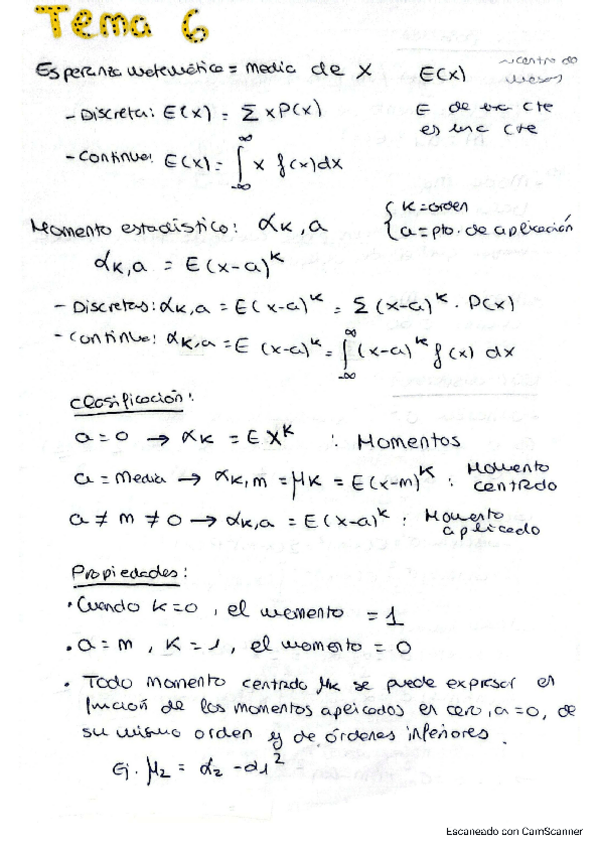 Tema 6
Esperanza matemática = media de X E(x) ~centro de masas
- Discreta: E(x) = Σ x P(x) E de una cte es una cte
- Continua: E(x) = ∫_{-∞}^{∞} x f(x) dx
Momento estadístico: α_{K,a} { K = orden
a = pto. de aplicación
α_{K,a} = E(x-a)^K
- Discretas: α_{K,a} = E(x-a)^K = Σ (x-a)^K · P(x)
- Continua: α_{K,a} = E (x-a)^K = ∫_{-∞}^{∞} (x-a)^K f(x) dx
Clasificación:
a = 0 → α_K = E X^K : Momentos
a = media → α_{K,m} = μ_K = E(x-m)^K : Momento centrado
a ≠ m ≠ 0 → α_{K,a} = E(x-a)^K : Momento aplicado
Propiedades:
· Cuando K=0, el momento = 1
· a = m, K = 1, el momento = 0
· Todo momento centrado μ_K se puede expresar en
función de los momentos aplicados en cero, a=0, de
su mismo orden y de órdenes inferiores.
Ej. μ_2 = α_2 - α_1^2
Escaneado con CamScanner